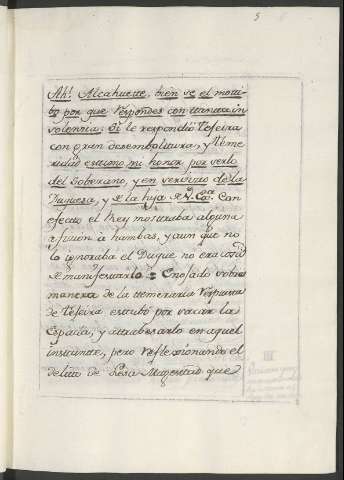 5
Ah! Alcahuete, bien ve el moti
bo por que respondes con tanta in
solencia: Si le respondió Tefeira
con gran desemboltura, y teme
ridad estimo mi honor por verlo
del Soberano, y en servicio de la
Duquesa, y de la hija de V. Ca. Con
efecto el Rey mostraba alguna
afision à hambas, y aun que no
lo ignoraba el Duque no era cosa
de manifestarlo: Enojado sobre
manera de la temeraria respuesta
de Tefeira estubo por sacar la
Espada, y atrabesarlo en aquel
instante, pero reflexionando el
delito de Lesa Magestad que